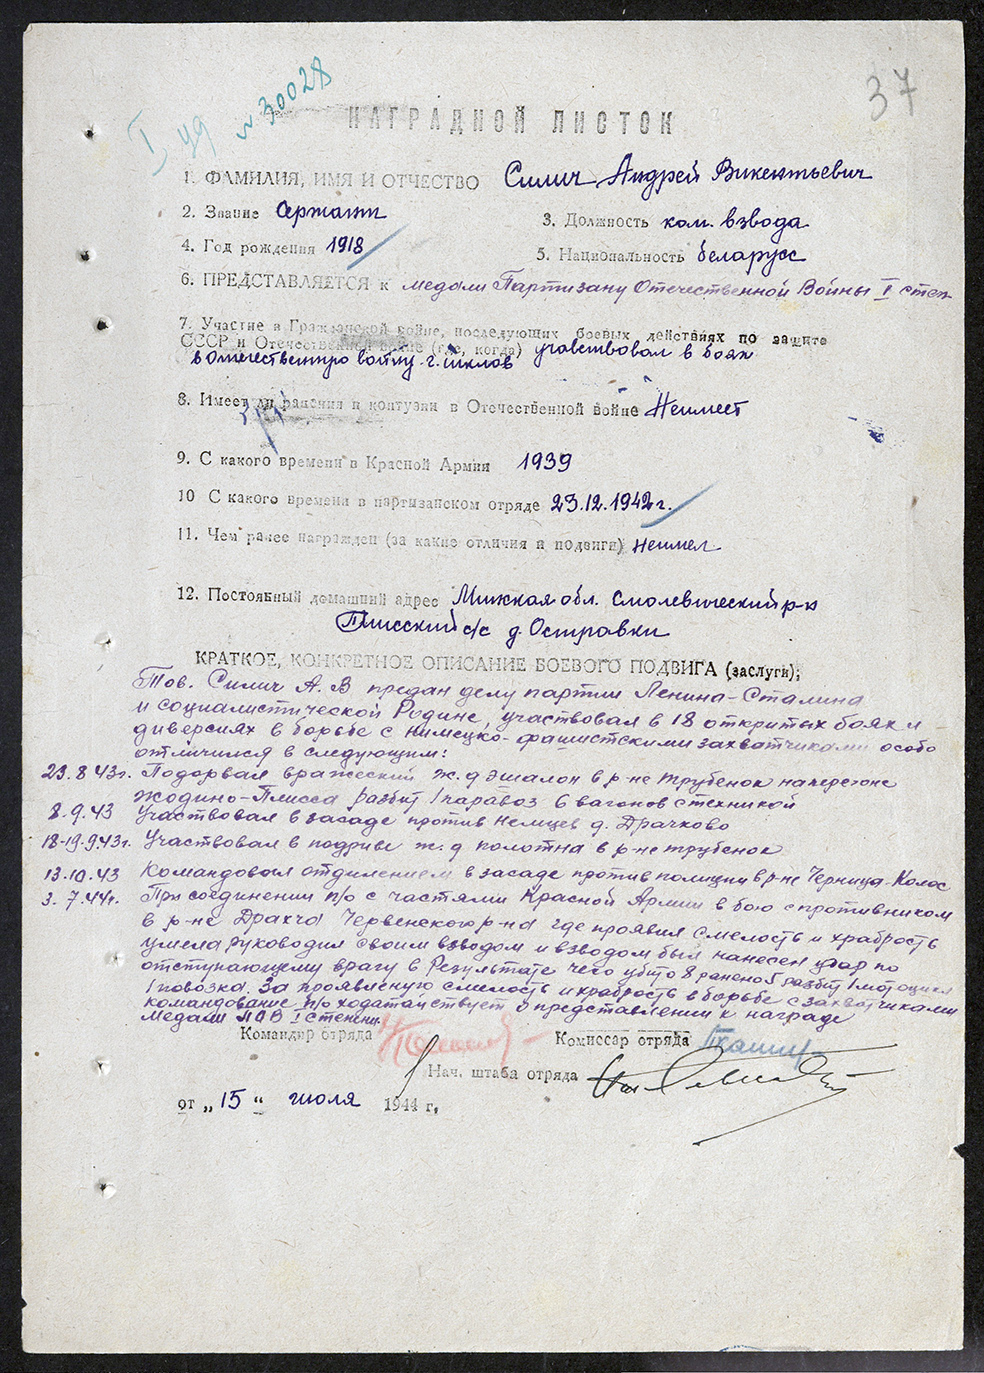 37
I уд № 30028
НАГРАДНОЙ ЛИСТОК
1. ФАМИЛИЯ, ИМЯ И ОТЧЕСТВО Силич Андрей Викентьевич
2. Звание Сержант
3. Должность ком. взвода
4. Год рождения 1918
5. Национальность беларусс
6. ПРЕДСТАВЛЯЕТСЯ к медали Партизану Отечественной Войны I степ
7. Участие в Гражданской войне, последующих боевых действиях по защите
СССР и Отечественной войне (где, когда) учавствовал в боях
в отечественную войну г. Шклов
8. Имеет ли ранения и контузии в Отечественной войне Неимеет
9. С какого времени в Красной Армии 1939
10 С какого времени в партизанском отряде 23.12.1942г.
11. Чем ранее награжден (за какие отличия и подвиги) неимел
12. Постоянный домашний адрес Минская обл. Смолевический р-н
Плисский с/с д. Островки
КРАТКОЕ, КОНКРЕТНОЕ ОПИСАНИЕ БОЕВОГО ПОДВИГА (заслуги);
Тов. Силич А. В предан делу партии Ленина-Сталина
и социалистической Родине, участвовал в 18 открытых боях и
диверсиях в борьбе с немецко-фашистскими захватчиками особо
отличился в следующим:
23.8 43г. Подорвал вражеский ж. д эшалон в р-не Трубенок наперегоне
Жодино-Плисса разбит 1 паравоз 6 вагонов с техникой
8.9.43 Участвовал в засаде против немцев д. Драчково
18-19.9.43г. Участвовал в подриве ж. д полотна в р-не трубенок
13.10.43 Командовал отделением в засаде против полиции в р-не Черница-Колос
3. 7.44г. При соединении п/о с частями Красной Армии в бою с противником
в р-не Драхча Червенского р-на где проявил смелость и храбрость
умела руководил своим взводом и взводом был нанесен удар по
отступающему врагу в результате чего убито 8 ранено 5 разбит 1 мотоцикл
1 повозка. За проявленую смелость и храбрость в борьбе с захватчиками
командование п/о ходатайствует о представлении к награде
Медали ПОВ I степени.
Командир отряда
Комиссар отряда
Нач. штаба отряда
от „ 15 “ июля 1944 г,